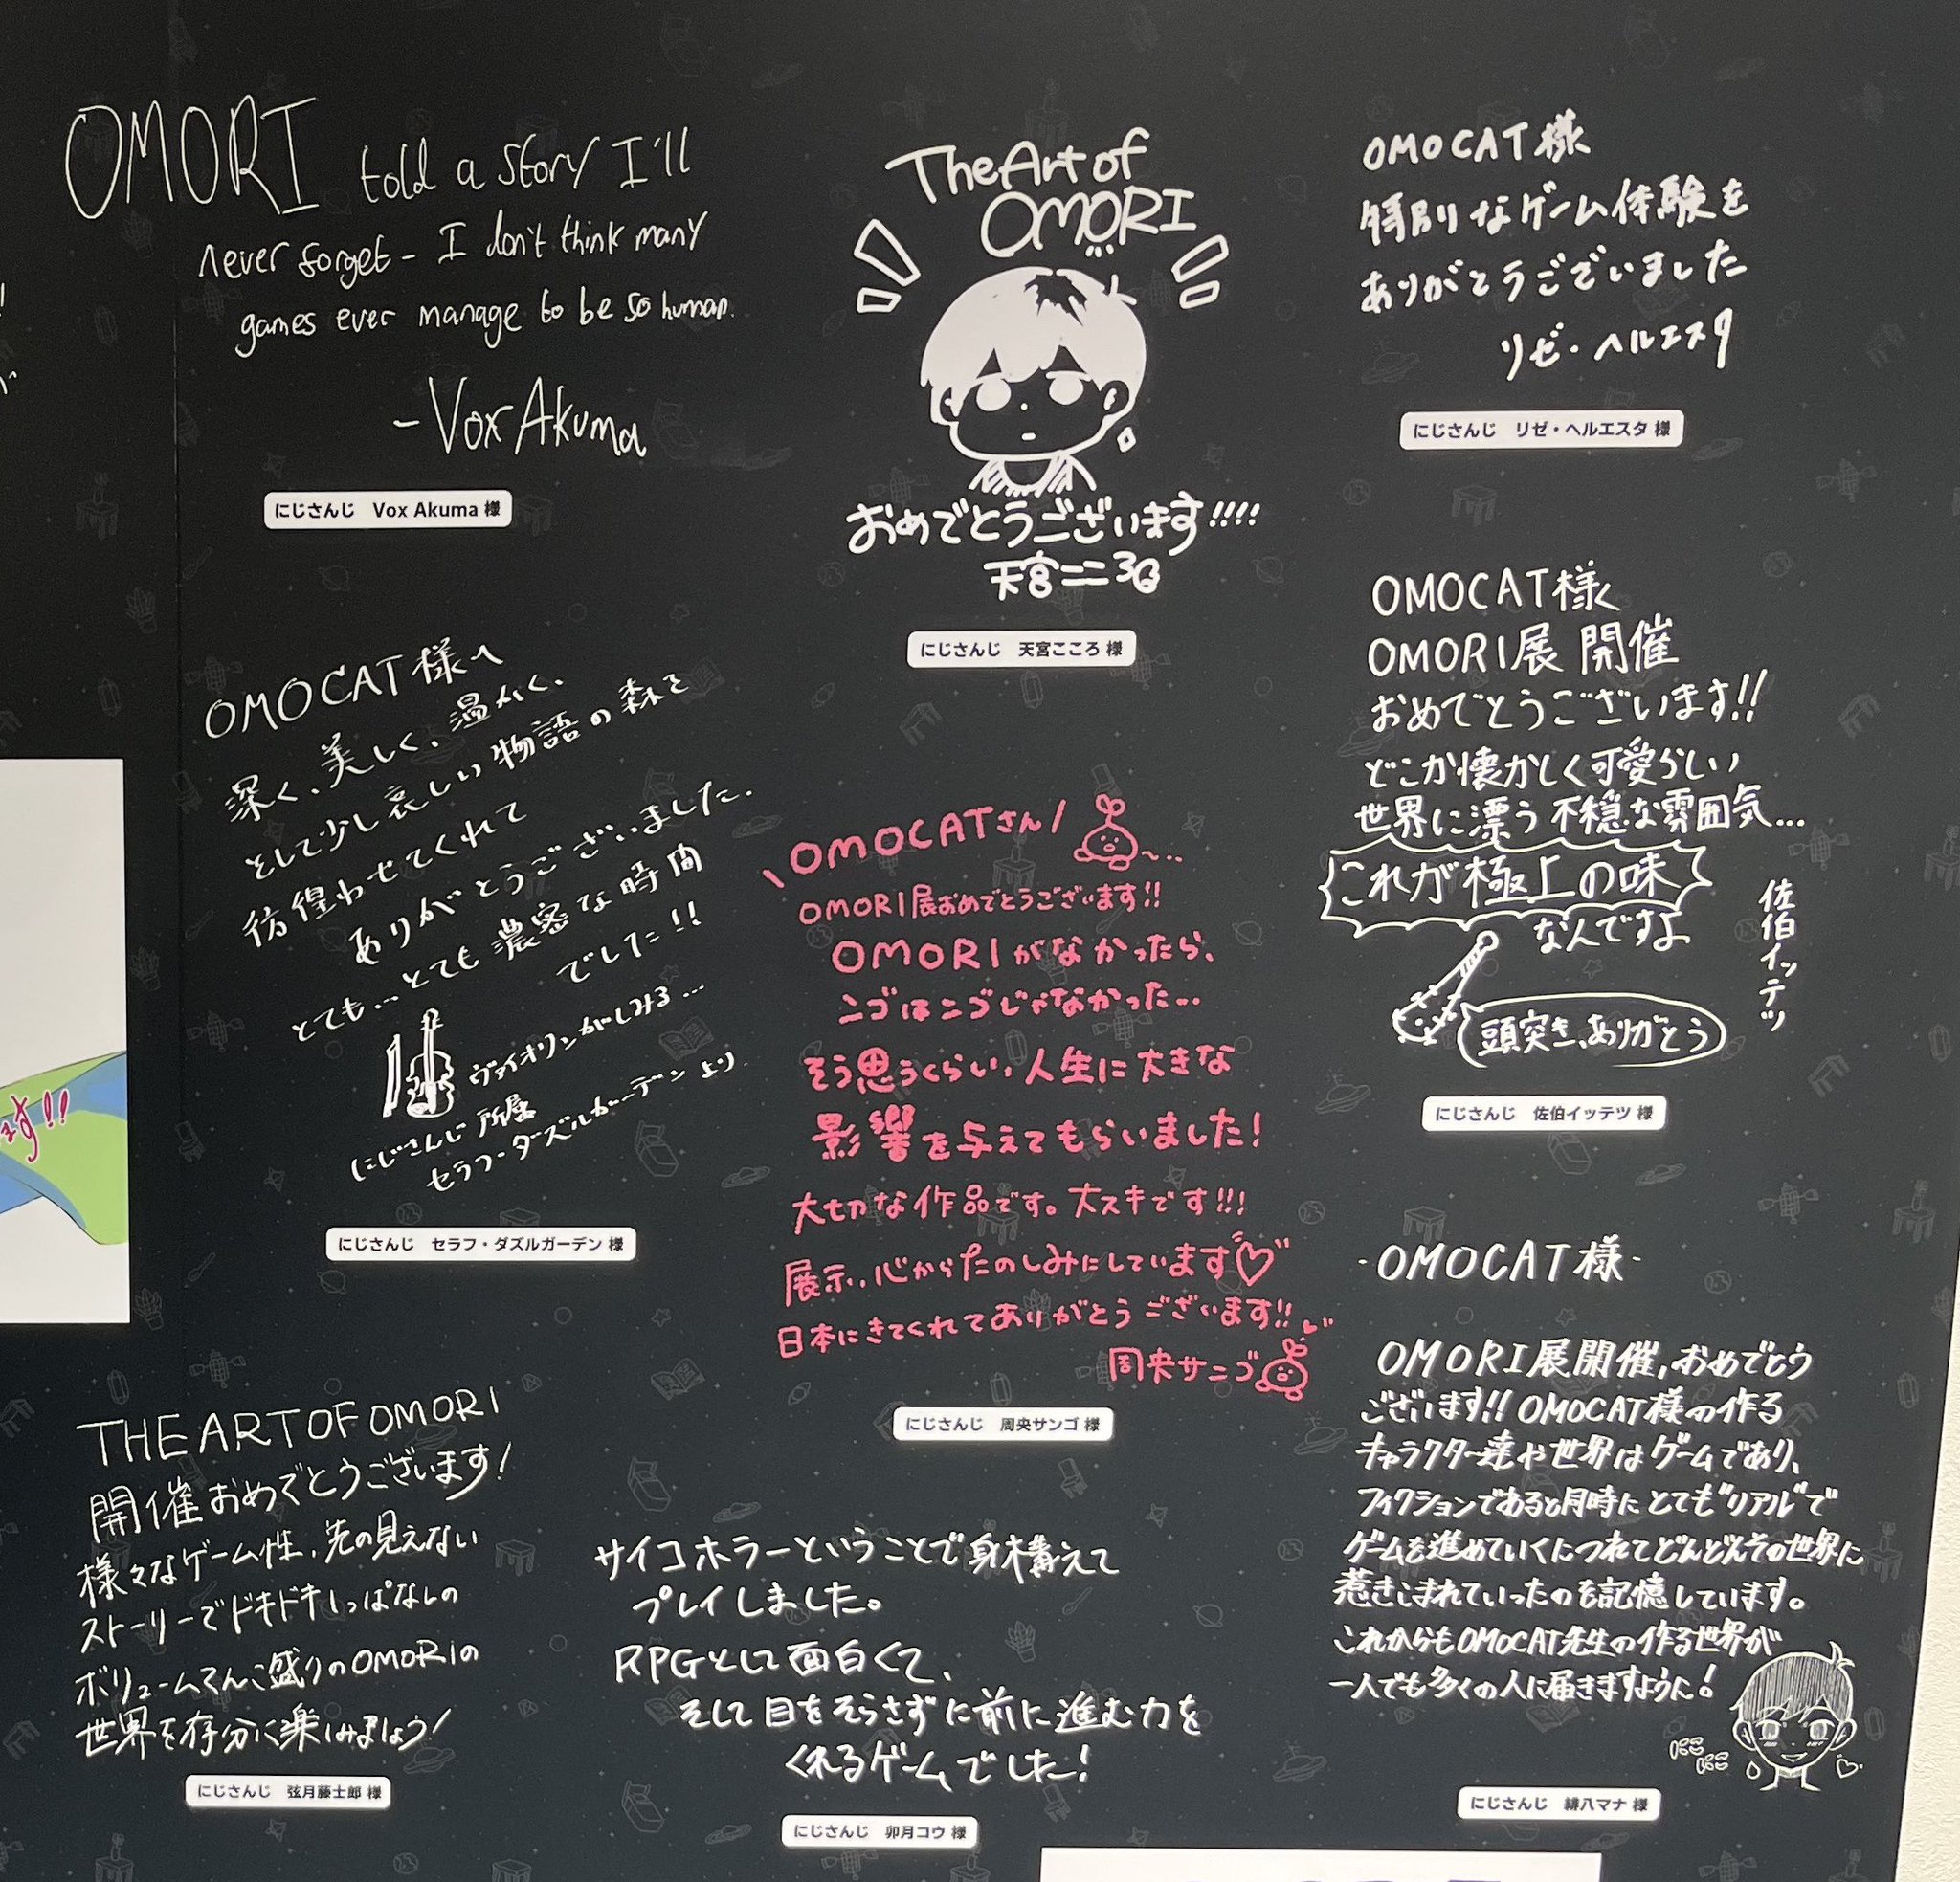 OMORI told a story I'll
never forget - I don't think many
games ever manage to be so human.
- Vox Akuma
にじさんじ Vox Akuma 様
The Art of
OMORI
おめでとうございます!!!!
天宮こころ
にじさんじ 天宮こころ 様
OMOCAT様
特別なゲーム体験を
ありがとうございました
リゼ・ヘルエスタ
にじさんじ リゼ・ヘルエスタ 様
OMOCAT様へ
深く、美しく、温かく、
そして少し哀しい物語の森を
彷徨わせてくれて
ありがとうございました.
とても…とても濃密な時間
でした!!
ヴァイオリンがしみる…
にじさんじ所属
セラフ・ダズルガーデン より
にじさんじ セラフ・ダズルガーデン 様
\OMOCATさん/
OMORI展おめでとうございます!!
OMORIがなかったら、
ンゴはンゴじゃなかった…
そう思うくらい、人生に大きな
影響を与えてもらいました!
大切な作品です。大スキです!!!
展示、心からたのしみにしています♡
日本にきてくれてありがとうございます!!
周央サンゴ
にじさんじ 周央サンゴ 様
OMOCAT様
OMORI展 開催
おめでとうございます!!
どこか懐かしく可愛らしい
世界に漂う不穏な雰囲気…
これが極上の味
なんですよ
佐伯イッテツ
頭突き、ありがとう
にじさんじ 佐伯イッテツ 様
THE ART OF OMORI
開催おめでとうございます!
様々なゲーム性、先の見えない
ストーリーでドキドキしっぱなしの
ボリュームてんこ盛りのOMORIの
世界を存分に楽しみましょう!
にじさんじ 弦月藤士郎 様
サイコホラーということで身構えて
プレイしました。
RPGとして面白くて、
そして目をそらさずに前に進む力を
くれるゲームでした!
にじさんじ 卯月コウ 様
-OMOCAT様-
OMORI展開催,おめでとう
ございます!!OMOCAT様の作る
キャラクター達や世界はゲームであり、
フィクションであると同時にとても"リアル"で
ゲームを進めていくにつれてどんどんその世界に
惹きこまれていったのを記憶しています。
これからもOMOCAT先生の作る世界が
一人でも多くの人に届きますように!
にこにこ
にじさんじ 緋八マナ 様
ます!!